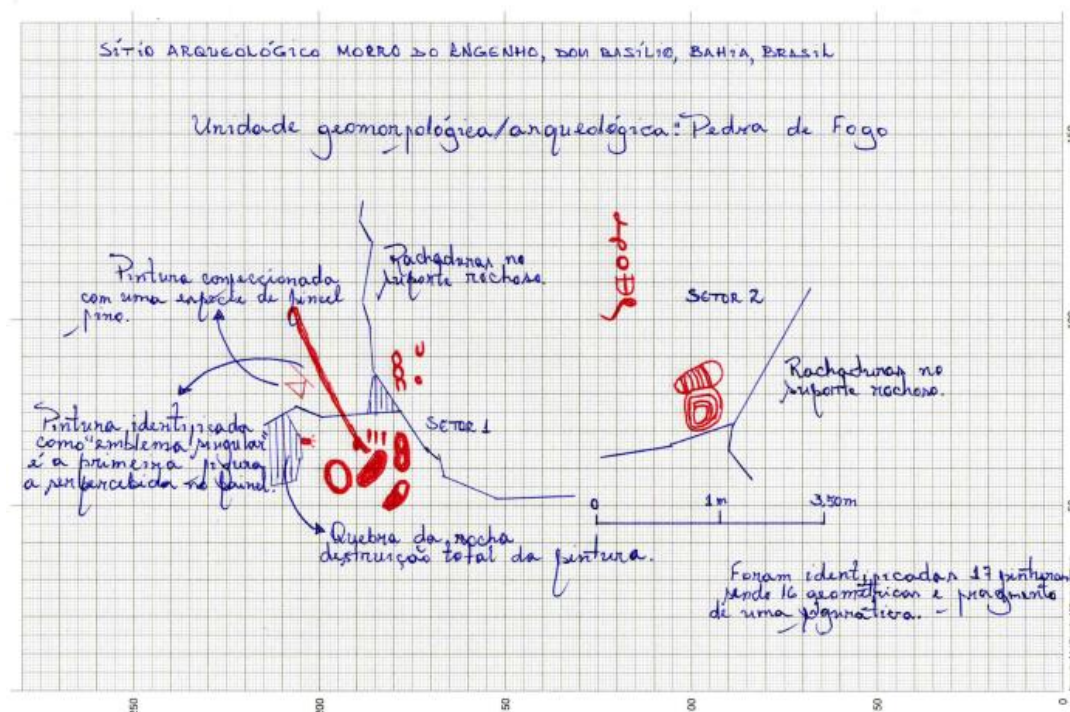 SÍTIO ARQUEOLÓGICO MORRO DO ENGENHO, DOM BASÍLIO, BAHIA, BRASIL
Unidade geomorfológica/arqueológica: Pedra de Fogo
Pintura confeccionada
com uma espécie de pincel
fino.
Rachaduras no
suporte rochoso.
SETOR 2
Rachaduras no
suporte rochoso.
Pintura identificada
como "emblema singular"
é a primeira figura
a ser percebida no painel.
SETOR 1
Quebra da rocha
destruição total da pintura.
0 1m 3,50m
Foram identificadas 17 pinturas
sendo 16 geométricas e fragmento
de uma figurativa.
150
100
50
250 200 150 100 50 0